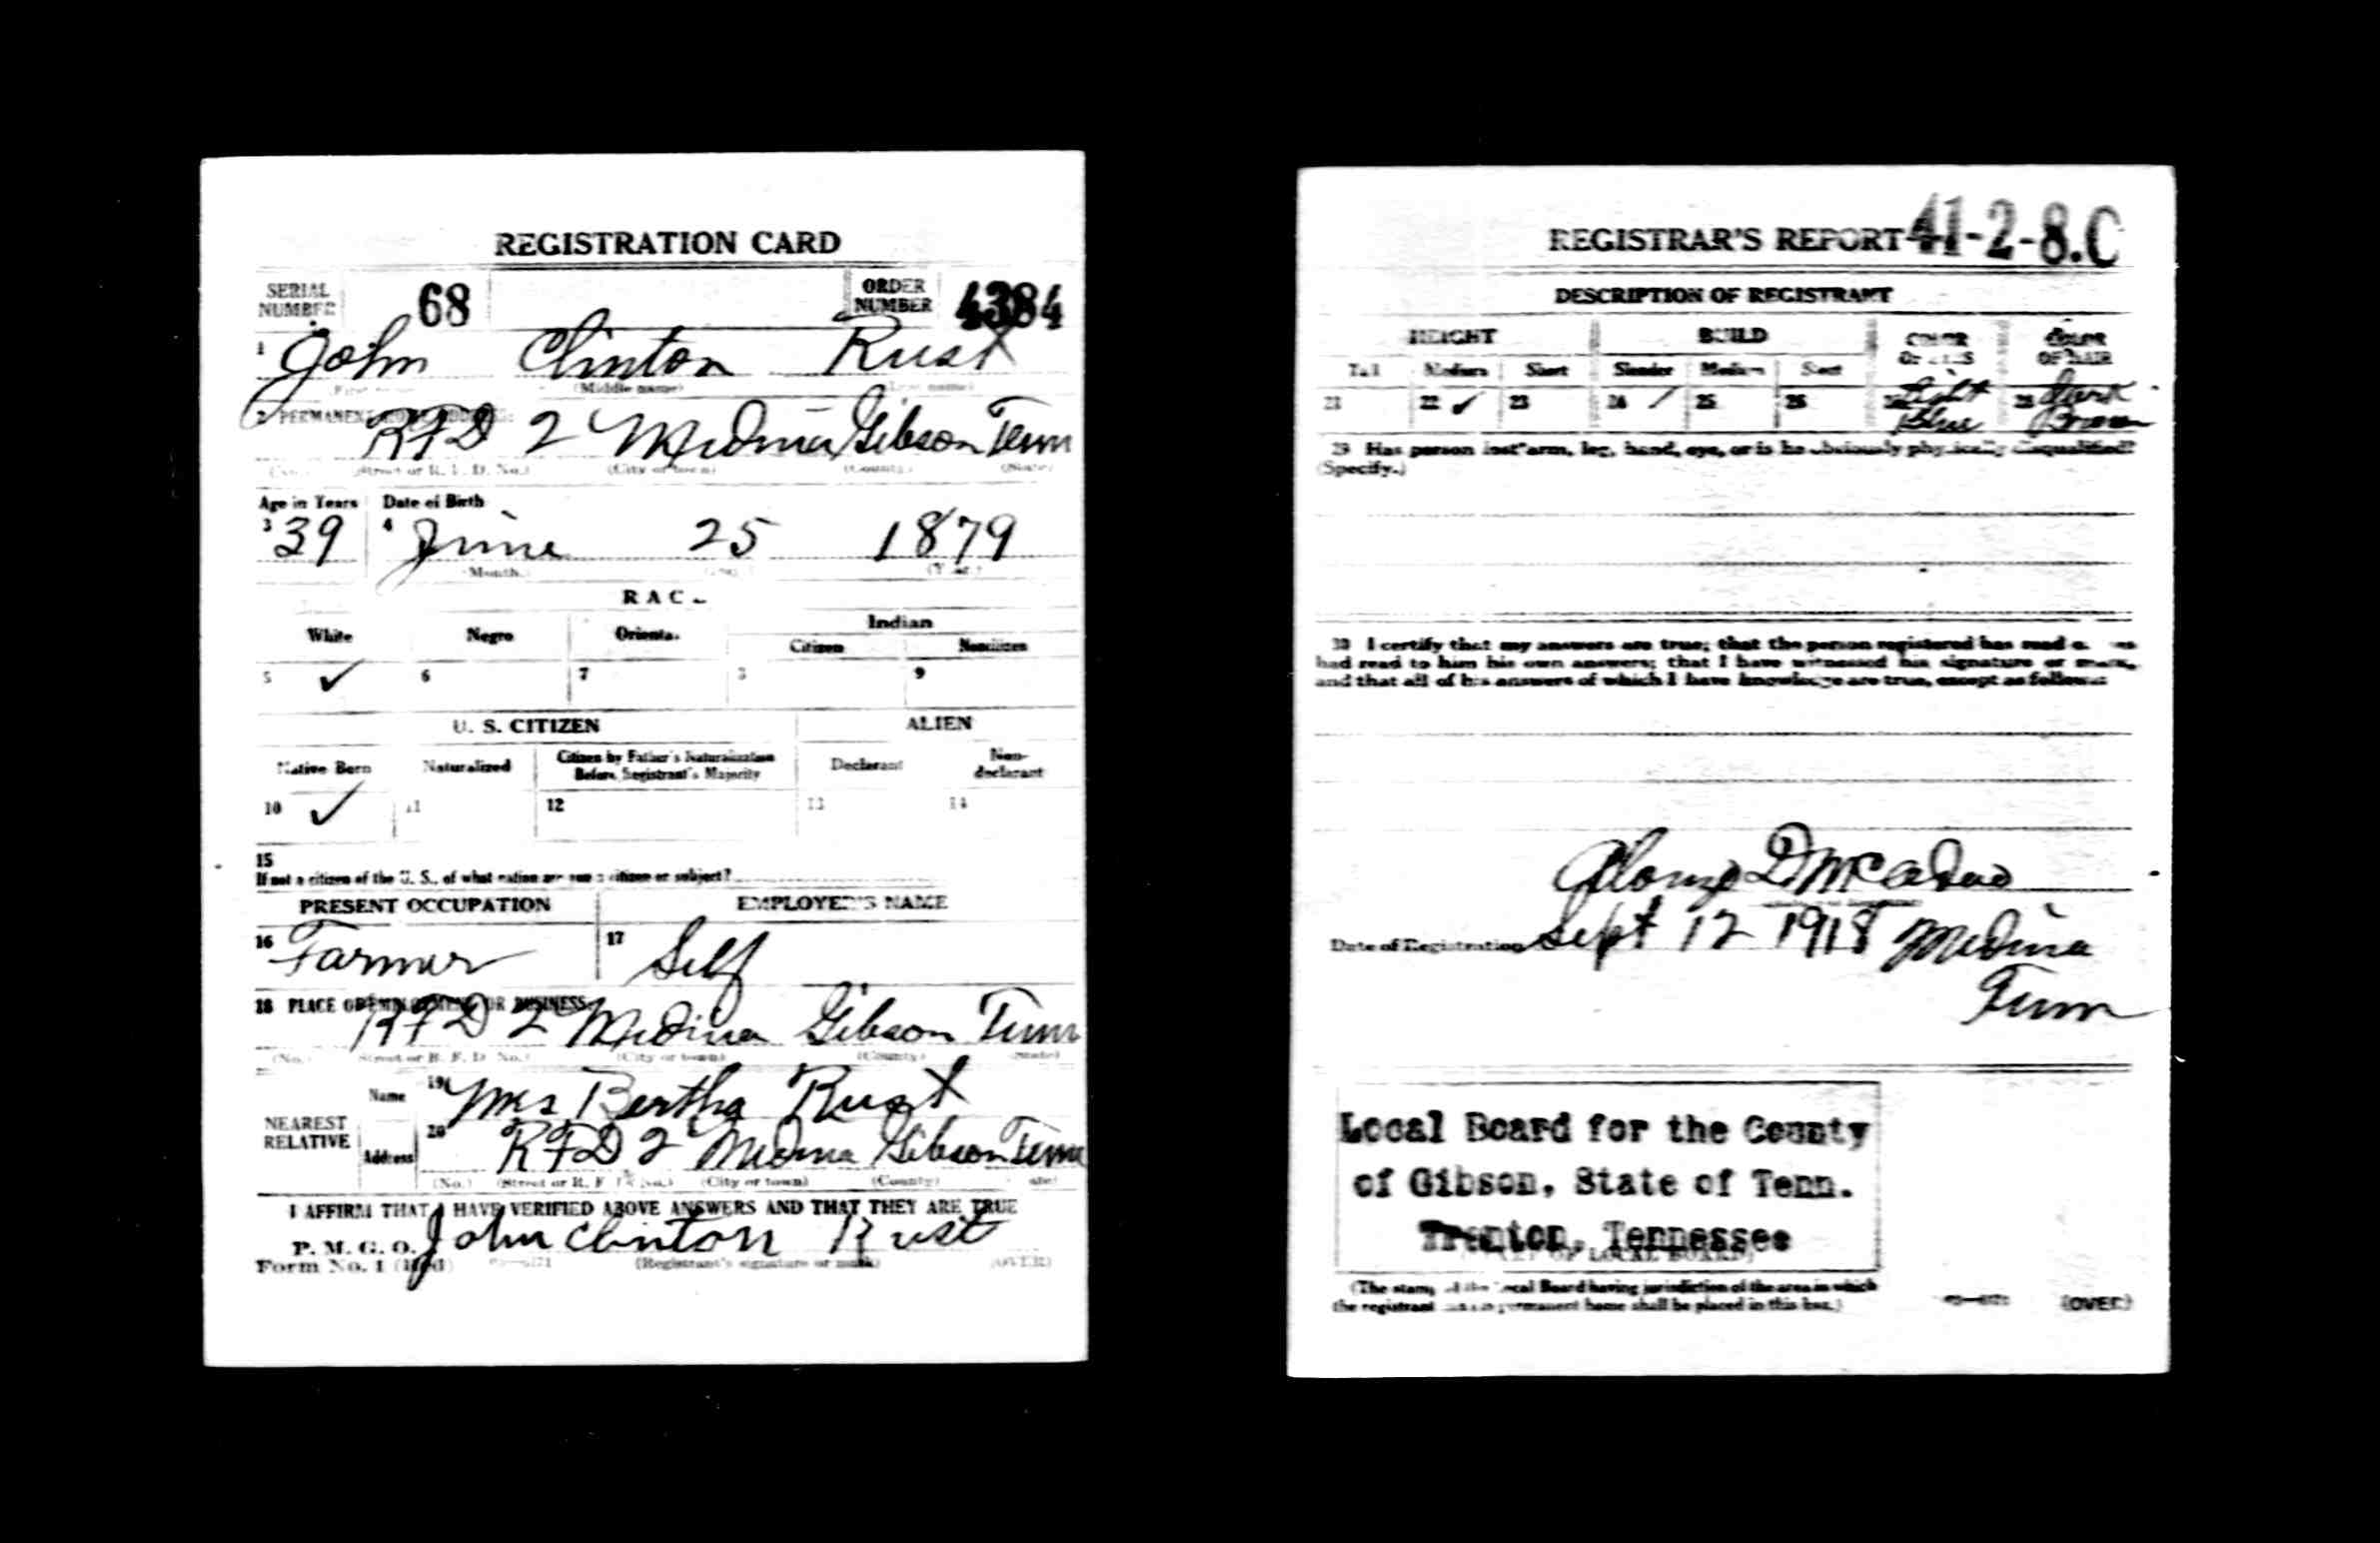 REGISTRATION CARD
SERIAL NUMBER 68 ORDER NUMBER 4384
1 John Clinton Rust
(Middle name) name)
2 PERMANENT HOME ADDRESS:
RFD 2 Medina Gibson Tenn
(Street or R. F. D. No.) (City or town) (County) (State)
Age in Years Date of Birth
3 39 4 June 25 1879
(Month.) (Year)
RAC
White Negro Orienta. Indian
Citizen Noncitizen
5 ✓ 6 7 9
U. S. CITIZEN ALIEN
Native Born Naturalized Citizen by Father's Naturalization Before Registrant's Majority Declarant Non-declarant
10 ✓ 11 12 13 14
15
If not a citizen of the U. S., of what nation are you a citizen or subject?
PRESENT OCCUPATION EMPLOYER'S NAME
16 Farmer 17 Self
18 PLACE OF EMPLOYMENT OR BUSINESS:
RFD 2 Medina Gibson Tenn
(No.) (Street or R. F. D. No.) (City or town) (County) (State)
NEAREST RELATIVE
Name 19 Mrs Bertha Rust
Address 20 RFD 2 Medina Gibson Tenn
(No.) (Street or R. F. D. No.) (City or town) (County)
I AFFIRM THAT I HAVE VERIFIED ABOVE ANSWERS AND THAT THEY ARE TRUE
P. M. G. O.
Form No. 1 (Red) John Clinton Rust
(Registrant's signature or mark) (OVER)
REGISTRAR'S REPORT 41-2-8.C
DESCRIPTION OF REGISTRANT
HEIGHT BUILD COLOR OF EYES COLOR OF HAIR
Tall Medium Short Slender Medium Stout
21 22 ✓ 23 24 / 25 26 Light Blue 28 Dark Brown
29 Has person lost arm, leg, hand, eye, or is he obviously physically disqualified?
(Specify.)
30 I certify that my answers are true; that the person registered has read or has
had read to him his own answers; that I have witnessed his signature or mark,
and that all of his answers of which I have knowledge are true, except as follows:
Alonzo D McAdoo
Date of Registration Sept 12 1918 Medina
Tenn
Local Board for the County
of Gibson, State of Tenn.
Trenton, Tennessee
(STAMP OF LOCAL BOARD)
(The stamp of the Local Board having jurisdiction of the area in which
the registrant has his permanent home shall be placed in this box.)
(OVER)